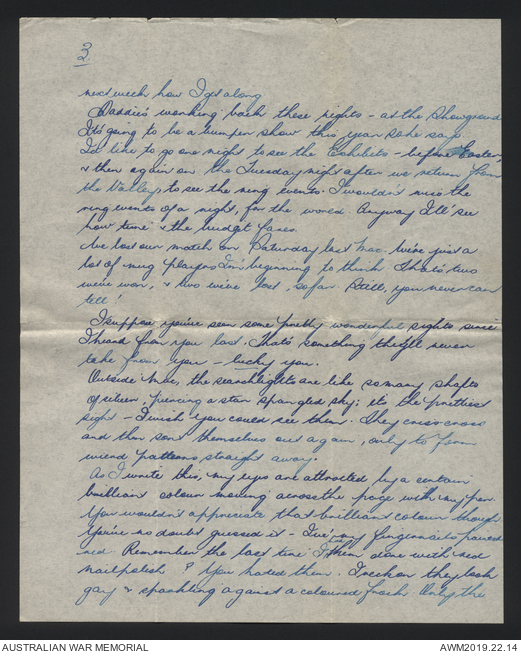 3
next week how I get along
Daddie's working back these nights - at the Showground
It's going to be a bumper show this year so he says
I'd like to go one night to see the Exhibits - before Easter,
& then again on the Tuesday night after we return from
the Valley, to see the ring events. I wouldn't miss the
ring events of a night, for the world. Anyway I'll see
how time & the budget fares.
We lost our match on Saturday last Mac. We're just a
lot of mug players I'm beginning to think. That's two
we've won, & two we've lost, so far. Still, you never can
tell!
I suppose you've seen some pretty wonderful sights since
I heard from you last. That's something they'll never
take from you - lucky you.
Outside Mac, the searchlights are like so many shafts
of silver, piercing a star spangled sky; it's the prettiest
sight - I wish you could see them. They criss-cross
and then sort themselves out again, only to form
wierd patterns, straight away.
As I write this, my eyes are attracted by a certain
brilliant colour moving across the page with my pen.
You wouldn't appreciate that brilliant colour though
You've no doubt guessed it - I've my fingernails painted
red. Remember the last time I had them done with red
nailpolish? You hated them. I reckon they look
gay & sparkling against a coloured frock. Only the
AUSTRALIAN WAR MEMORIAL
AWM2019.22.14